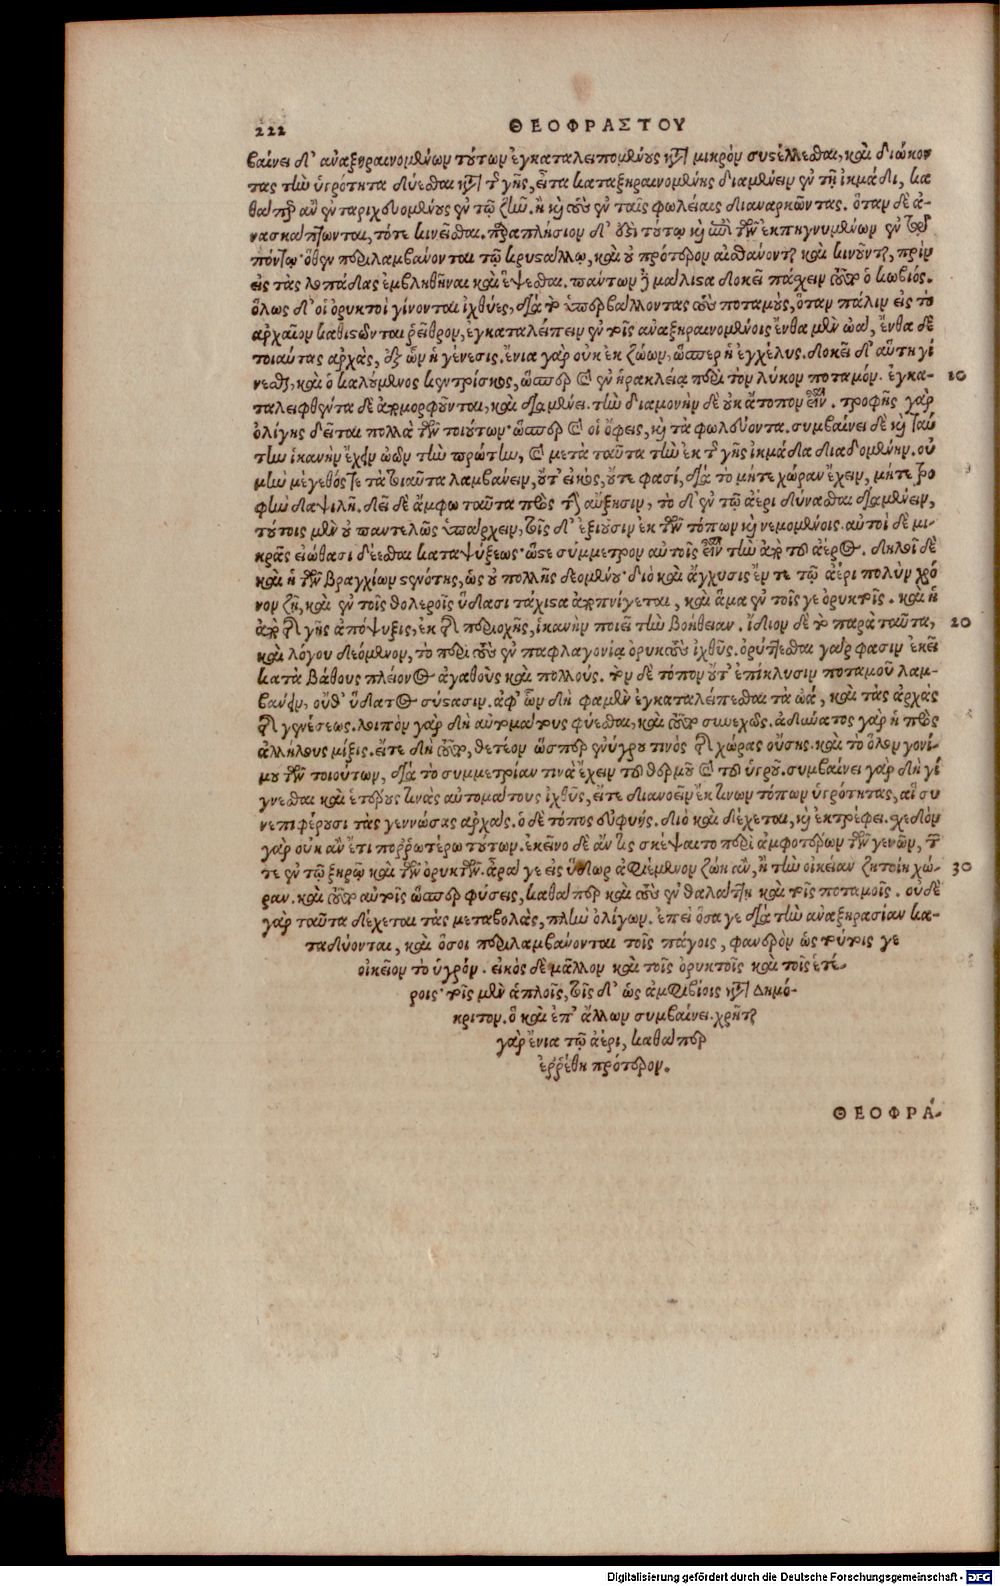 222
ΘΕΟΦΡΑΣΤΟΥ
βαίνει δ' ἀναξηραινομένων τούτων ἐγκαταλειπομένους κατὰ μικρὸν συστέλλεσθαι, καὶ διώκον
τας τὴν ὑγρότητα δύεσθαι κατὰ τῆς γῆς, εἶτα καταξηραινομένης διαμένειν ἐν τῇ ἰκμάδι, κα
θάπερ ἂν ἐν ταριχευομένους ἐν τῷ ζῆν. ἢ καὶ τοὺς ἐν ταῖς φωλείαις διαναρκῶντας. ὅταν δὲ ἀ-
νασκάπτωνται, τότε κινεῖσθαι. παραπλήσιον δ' ἐστὶ τούτῳ καὶ ἐπὶ τῶν ἐκπηγνυμένων ἐν τῷ
πόντῳ· ὅθεν περιλαμβάνονται τῷ κρυστάλλῳ, καὶ οὐ πρότερον αἰσθάνονται καὶ κινοῦνται, πρὶν
εἰς τὰς λοπάδας ἐμβληθῆναι καὶ ἕψεσθαι. πάντων δὲ μάλιστα δοκεῖ πάσχειν τοῦτο ὁ κωβιός.
ὅλως δ' οἱ ὀρυκτοὶ γίνονται ἰχθύες, διὰ τὸ ὑπερβάλλοντας τοὺς ποταμοὺς, ὅταν πάλιν εἰς τὸ
ἀρχαῖον καθιστῶνται ῥεῖθρον, ἐγκαταλείπειν ἐν τοῖς ἀναξηραινομένοις ἔνθα μὲν ὠὰ, ἔνθα δὲ
τοιαύτας ἀρχὰς, ἐξ ὧν ἡ γένεσις. ἔνια γὰρ οὐκ ἐκ ζώων, ὥσπερ ἡ ἐγχέλυς. δοκεῖ δ' αὕτη γί
νεσθαι, καὶ ὁ καλούμενος κεντρίσκος, ὥσπερ καὶ ἐν ἡρακλείᾳ περὶ τὸν λύκον ποταμόν. ἐγκα- 10
ταλειφθέντα δὲ διαμορφοῦνται, καὶ διαμένει. τὴν διαμονὴν δὲ οὐκ ἄτοπον εἶναι. τροφῆς γὰρ
ὀλίγης δεῖται πολλὰ τῶν τοιούτων· ὥσπερ καὶ οἱ ὄφεις, καὶ τὰ φωλεύοντα. συμβαίνει δὲ καὶ ταύ
την ἱκανὴν ἔχειν ὠὸν τὴν πρώτην, καὶ μετὰ ταῦτα τὴν ἐκ τῆς γῆς ἰκμάδα διαδομένην. οὐ
μὴν μέγεθός γε τὰ τοιαῦτα λαμβάνειν, οὔτ' εἰκὸς, οὔτε φασί, διὰ τὸ μήτε χώραν ἔχειν, μήτε τρο
φὴν δαψιλῆ. δεῖ δὲ ἄμφω ταῦτα πρὸς τὴν αὔξησιν, τὸ δ' ἐν τῷ ἀέρι δύνασθαι διαμένειν,
τούτοις μὲν οὐ παντελῶς ὑπάρχειν, τοῖς δ' ἐξιοῦσιν ἐκ τῶν τόπων καὶ νεμομένοις. αὐτοὶ δὲ μι-
κρᾶς εἰώθασι δέεσθαι καταψύξεως· ὥστε σύμμετρον αὐτοῖς εἶναι τὴν ἀπὸ τοῦ ἀέρος. δηλοῖ δὲ
καὶ ἡ τῶν βραγχίων στενότης, ὡς οὐ πολλῆς δεομένου· διὸ καὶ ἄγχυσις ἔν τε τῷ ἀέρι πολὺν χρό
νον ζῇ, καὶ ἐν τοῖς θολεροῖς ὕδασι τάχιστα ἀποπνίγεται, καὶ ἅμα ἐν τοῖς γε ὀρυκτοῖς. καὶ ἡ
ἀπὸ τῆς γῆς ἀπόψυξις, ἐκ τῆς περιοχῆς, ἱκανὴν ποιεῖ τὴν βοήθειαν. ἴδιον δὲ τὸ παρὰ ταῦτα, 20
καὶ λόγου δεόμενον, τὸ περὶ τοὺς ἐν παφλαγονίᾳ ὀρυκτοὺς ἰχθῦς. ὀρύττεσθαι γάρ φασιν ἐκεῖ
κατὰ βάθους πλείονος ἀγαθοὺς καὶ πολλούς. τὸν δὲ τόπον οὔτ' ἐπίκλυσιν ποταμοῦ λαμ-
βάνειν, οὔθ' ὕδατος σύστασιν. ἀφ' ὧν δὴ φαμὲν ἐγκαταλείπεσθαι τὰ ὠὰ, καὶ τὰς ἀρχὰς
τῆς γενέσεως. λοιπὸν γὰρ δὴ αὐτομάτους φύεσθαι, καὶ τοῦτο συνεχῶς. ἀδύνατος γὰρ ἡ πρὸς
ἀλλήλους μίξις. εἴτε δὴ τοῦτο, θετέον ὥσπερ ἐνύγρου τινὸς τῆς χώρας οὔσης. καὶ τὸ ὅλον γονί-
μου τῶν τοιούτων, διὰ τὸ συμμετρίαν τινὰ ἔχειν τοῦ θερμοῦ καὶ τοῦ ὑγροῦ. συμβαίνει γὰρ δὴ γί
γνεσθαι καὶ ἑτέρους τινὰς αὐτομάτους ἰχθῦς, εἴτε διανοεῖν ἔκ τινων τόπων ὑγρότητας, αἳ συ
νεπιφέρουσι τὰς γεννώσας ἀρχάς. ὁ δὲ τόπος εὐφυής. διὸ καὶ δέχεται, καὶ ἐκτρέφει. σχεδὸν
γὰρ οὐκ ἂν ἔτι πορρωτέρω τούτων. ἐκεῖνο δὲ ἄν τις σκέψαιτο περὶ ἀμφοτέρων τῶν γενῶν, τῶν
τε ἐν τῷ ξηρῷ καὶ τῶν ὀρυκτῶν. ἆρά γε εἰς ὕδωρ ἀφιέμενον ζώῃ ἂν, ἢ τὴν οἰκείαν ζητοίη χώ- 30
ραν. καὶ τοῦτο αὐτοῖς ὥσπερ φύσεις, καθάπερ καὶ τοὺς ἐν θαλάττῃ καὶ τοῖς ποταμοῖς. οὐδὲ
γὰρ ταῦτα δέχεται τὰς μεταβολὰς, πλὴν ὀλίγων. ἐπεὶ ὅσα γε διὰ τὴν ἀναξηρασίαν κα-
ταδύονται, καὶ ὅσοι περιλαμβάνονται τοῖς πάγοις, φανερὸν ὡς τούτοις γε
οἰκεῖον τὸ ὑγρόν. εἰκὸς δὲ μᾶλλον καὶ τοῖς ὀρυκτοῖς καὶ τοῖς ἑτέ-
ροις· τοῖς μὲν ἁπλοῖς, τοῖς δ' ὡς ἀμφιβίοις κατὰ Δημό-
κριτον. ὃ καὶ ἐπ' ἄλλων συμβαίνει. χρῆται
γὰρ ἔνια τῷ ἀέρι, καθάπερ
ἐρρέθη πρότερον.
ΘΕΟΦΡΑ-
Digitalisierung gefördert durch die Deutsche Forschungsgemeinschaft - DFG